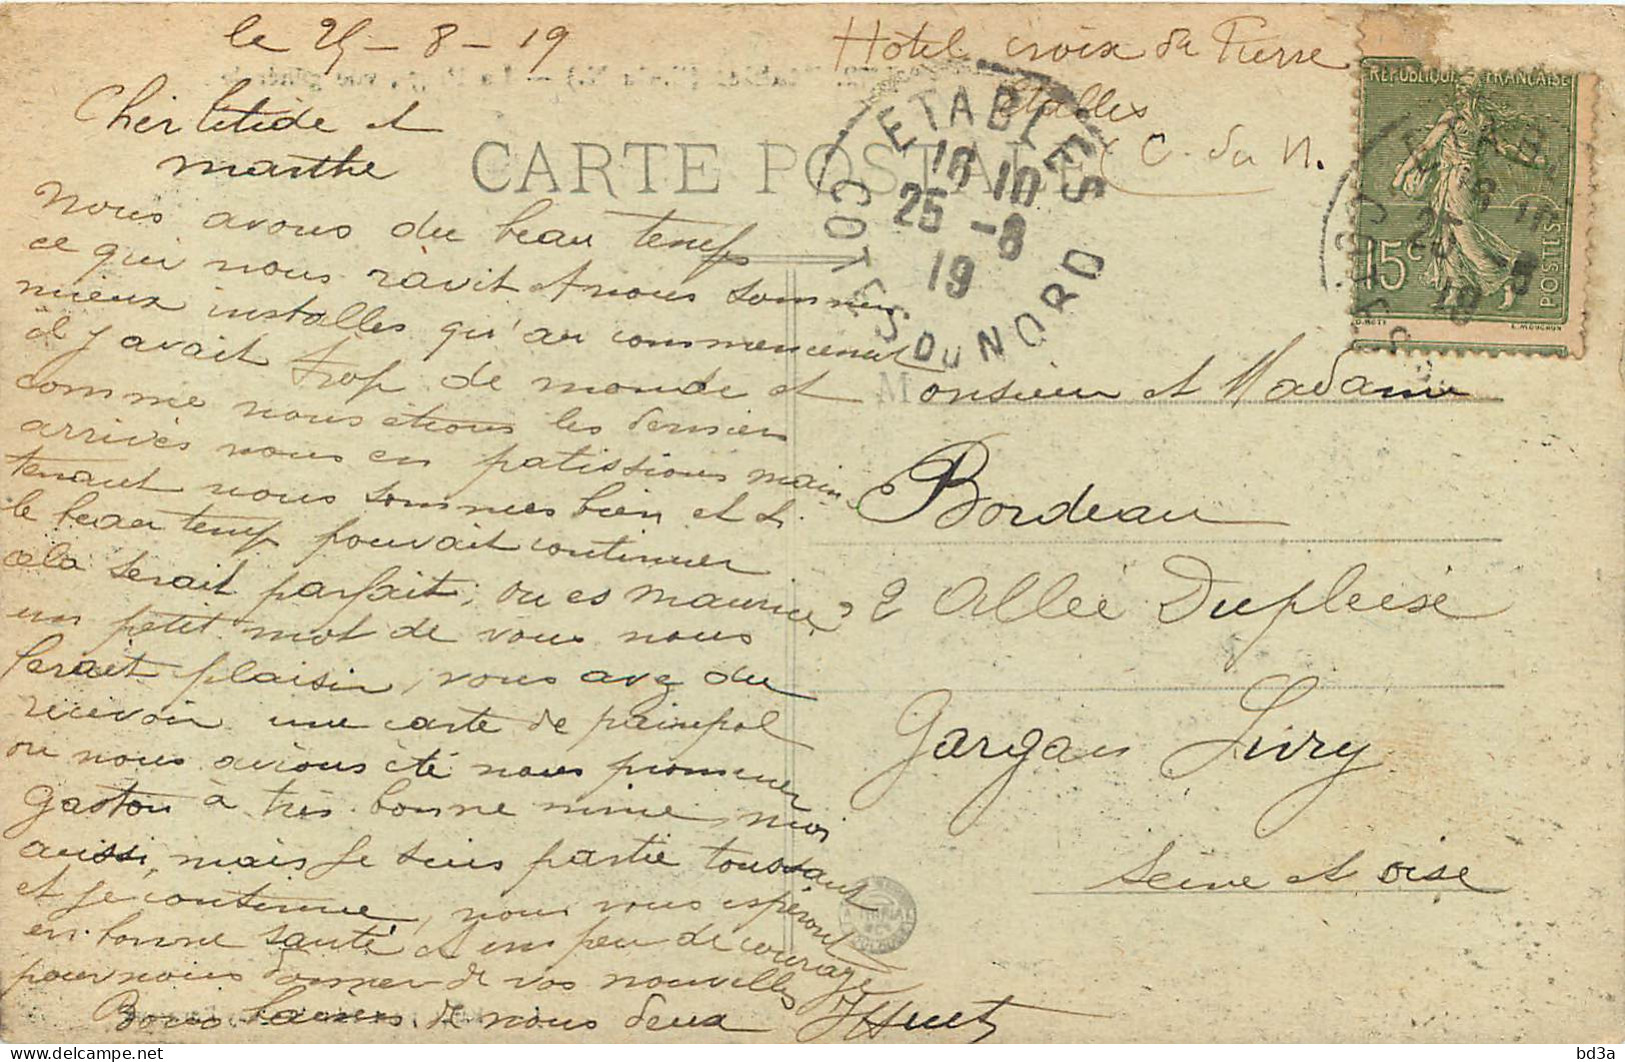 le 25-8-19
Hotel croix de Pierre
Etables
(C. du N.
CARTE POSTALE
ETABLES
16 10
25 -8
19
COTES DU NORD
RÉPUBLIQUE FRANÇAISE
15c
POSTES
Cher et
marthe
Nous avons du beau temps
ce qui nous ravit et nous sommes
mieux installes qu'au commencement
il y avait trop de monde et
comme nous étions les derniers
arrivés nous en patissions main
tenant nous sommes bien et si
le beau temps pouvait continuer
cela serait parfait, ou es maurice?
un petit mot de vous nous
ferait plaisir, vous avez du
recevoir une carte de paimpol
ou nous avions été nous promener
Gaston à très bonne mine, moi
aussi, mais je suis partie toussant
et je continue, nous vous espéront
en bonne santé et un peu de courage
pour nous donner de vos nouvelles
Bons baisers de nous deux
JHuet
Monsieur et Madame
Bordeau
2 Allée Dupleise
Gargan Livry
Seine et oise